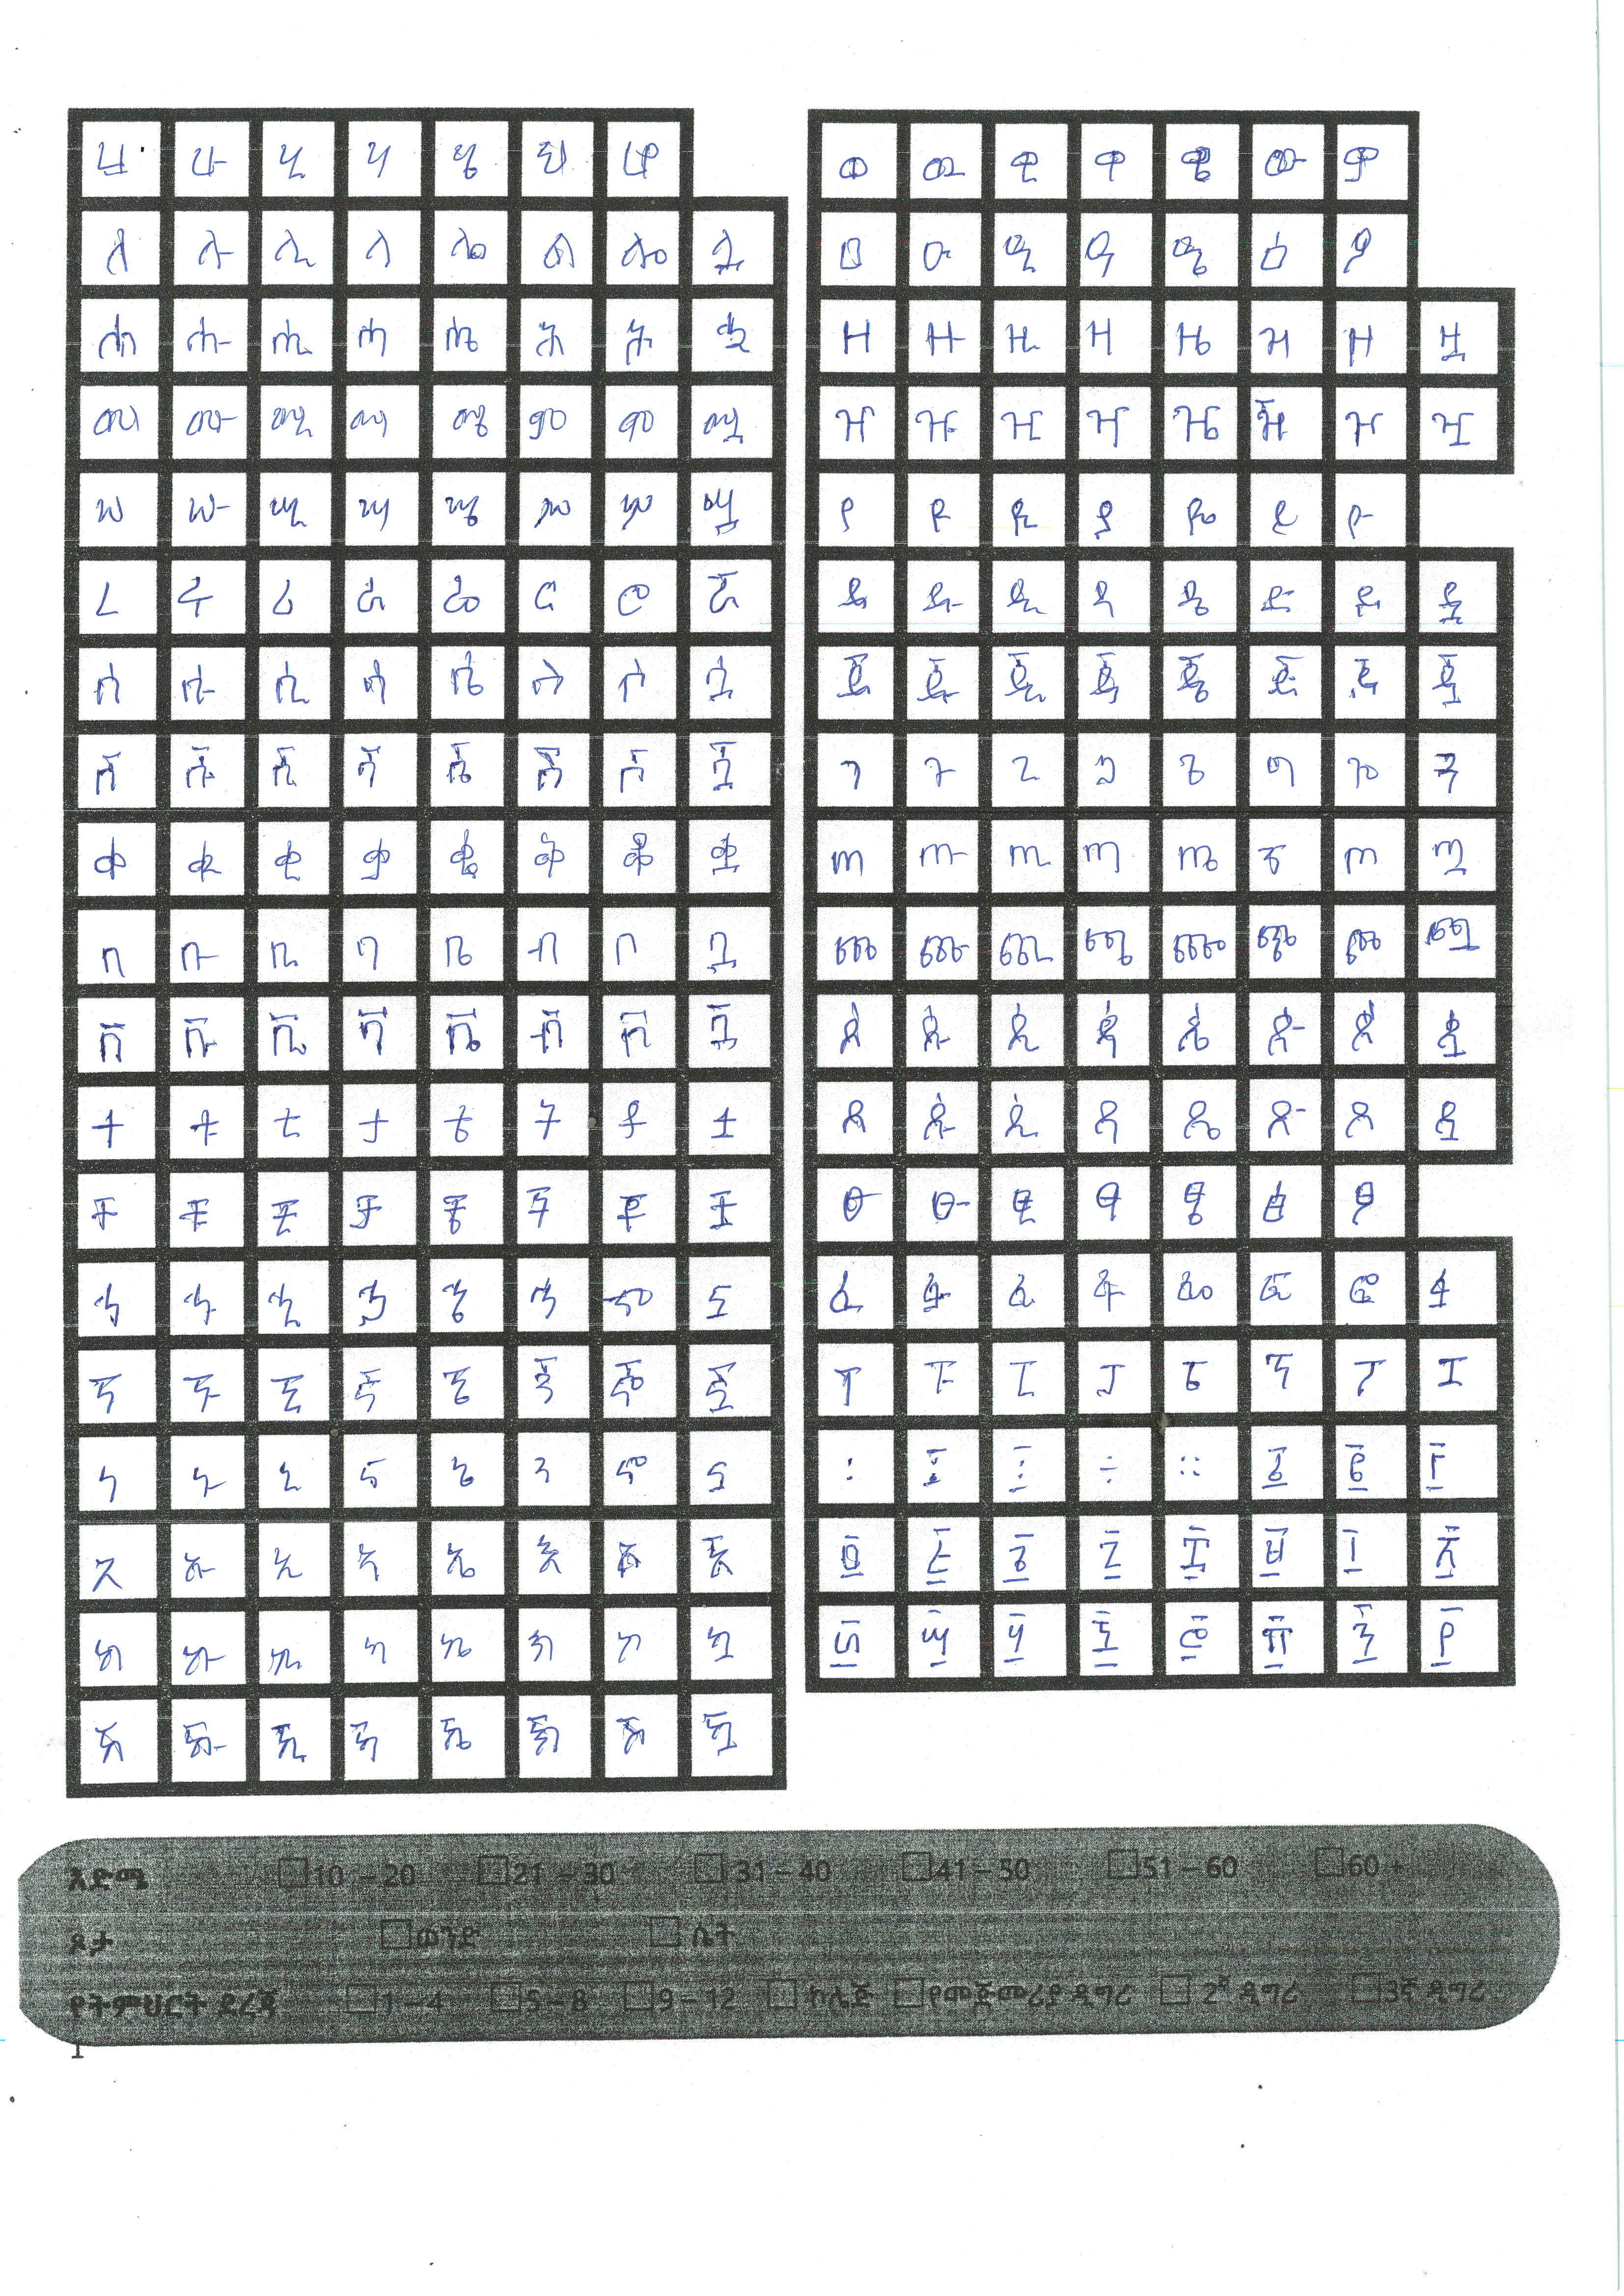 ሀ ሁ ሂ ሃ ሄ ህ ሆ
ለ ሉ ሊ ላ ሌ ል ሎ ሏ
ሐ ሑ ሒ ሓ ሔ ሕ ሖ ሗ
መ ሙ ሚ ማ ሜ ም ሞ ሟ
ሠ ሡ ሢ ሣ ሤ ሥ ሦ ሧ
ረ ሩ ሪ ራ ሬ ር ሮ ሯ
ሰ ሱ ሲ ሳ ሴ ስ ሶ ሷ
ሸ ሹ ሺ ሻ ሼ ሽ ሾ ሿ
ቀ ቁ ቂ ቃ ቄ ቅ ቆ ቋ
በ ቡ ቢ ባ ቤ ብ ቦ ቧ
ቨ ቩ ቪ ቫ ቬ ቭ ቮ ቯ
ተ ቱ ቲ ታ ቴ ት ቶ ቷ
ቸ ቹ ቺ ቻ ቼ ች ቾ ቿ
ኀ ኁ ኂ ኃ ኄ ኅ ኆ ኋ
ኘ ኙ ኚ ኛ ኜ ኝ ኞ ኟ
ነ ኑ ኒ ና ኔ ን ኖ ኗ
አ ኡ ኢ ኣ ኤ እ ኦ ኧ
ከ ኩ ኪ ካ ኬ ክ ኮ ኳ
ኸ ኹ ኺ ኻ ኼ ኽ ኾ ዃ
ወ ዉ ዊ ዋ ዌ ው ዎ
ዐ ዑ ዒ ዓ ዔ ዕ ዖ
ዘ ዙ ዚ ዛ ዜ ዝ ዞ ዟ
ዠ ዡ ዢ ዣ ዤ ዥ ዦ ዧ
የ ዩ ዪ ያ ዬ ይ ዮ
ደ ዱ ዲ ዳ ዴ ድ ዶ ዷ
ጀ ጁ ጂ ጃ ጄ ጅ ጆ ጇ
ገ ጉ ጊ ጋ ጌ ግ ጎ ጓ
ጠ ጡ ጢ ጣ ጤ ጥ ጦ ጧ
ጨ ጩ ጪ ጫ ጬ ጭ ጮ ጯ
ጰ ጱ ጲ ጳ ጴ ጵ ጶ ጷ
ጸ ጹ ጺ ጻ ጼ ጽ ጾ ጿ
ፀ ፁ ፂ ፃ ፄ ፅ ፆ
ፈ ፉ ፊ ፋ ፌ ፍ ፎ ፏ
ፐ ፑ ፒ ፓ ፔ ፕ ፖ ፗ
፡ ÷ ። ፩ ፪ ፫
፬ ፭ ፮ ፯ ፰ ፱ ፲ ፳
፴ ፵ ፶ ፷ ፸ ፹ ፺ ፻
እድሜ 10 – 20 21 – 30 31 – 40 41 – 50 51 – 60 60 +
ጾታ ወንድ ሴት
የትምህርት ደረጃ 1 – 4 5 – 8 9 – 12 ኮሌጅ የመጀመሪያ ዲግሪ 2ኛ ዲግሪ 3ኛ ዲግሪ
1